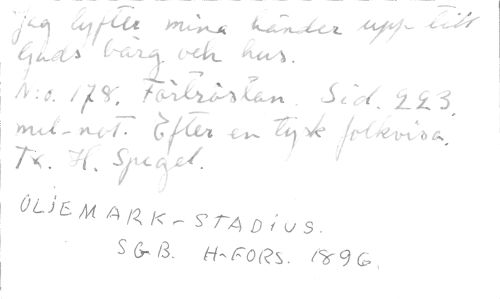 Jag lyfter mina händer upp till
Guds bärg och hus.
N:o. 178. Förtröstan. Sid. 223.
mel-not. Efter en tysk folkvisa.
Tx. H. Spegel.
OLJEMARK-STADIUS.
SGB. H-FORS. 1896.